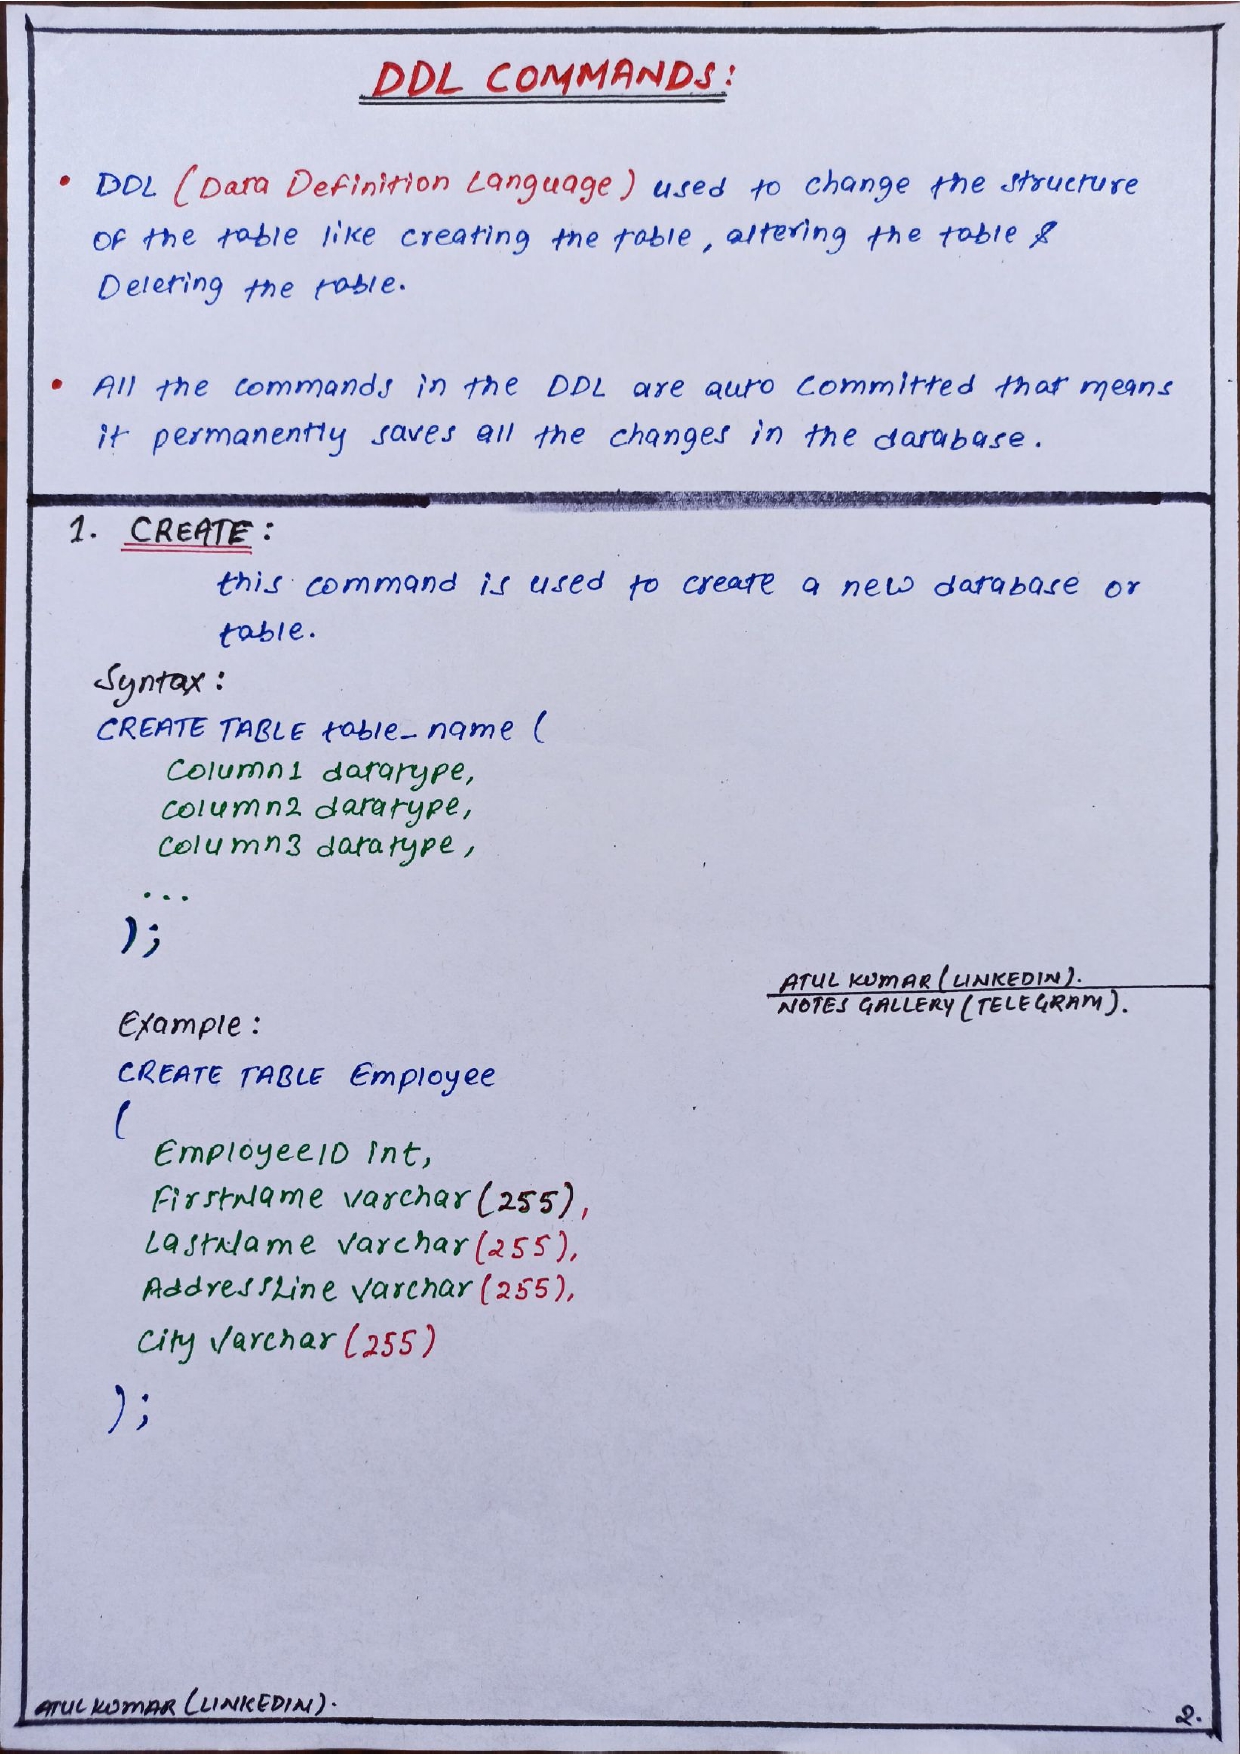 DDL COMMANDS:
• DDL (Data Definition Language) used to change the structure
of the table like creating the table, altering the table &
Deleting the table.
• All the commands in the DDL are auto committed that means
it permanently saves all the changes in the database.
1. CREATE:
this command is used to create a new database or
table.
Syntax:
CREATE TABLE table_name (
Column1 datatype,
column2 datatype,
column3 datatype,
...
);
ATUL KUMAR (LINKEDIN).
NOTES GALLERY (TELEGRAM).
Example:
CREATE TABLE Employee
(
EmployeeID int,
FirstName varchar (255),
LastName varchar (255),
AddressLine varchar (255),
City varchar (255)
);
ATUL KUMAR (LINKEDIN).
2.